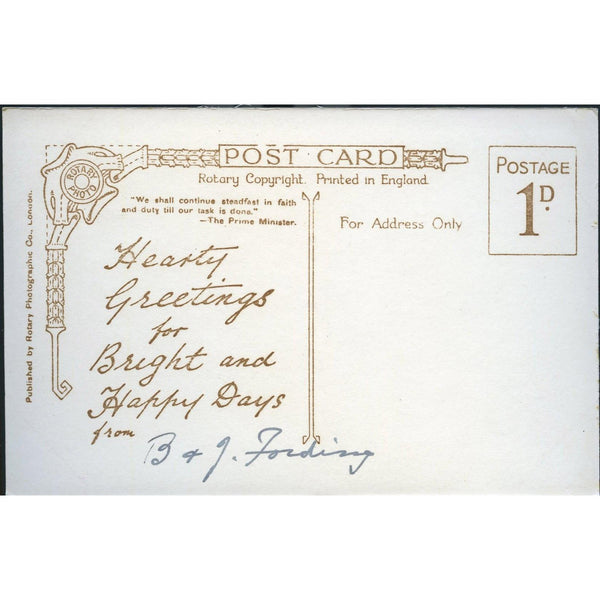 POST CARD
Rotary Copyright. Printed in England.
ROTARY
PHOTO
"We shall continue steadfast in faith
and duty till our task is done."
—The Prime Minister.
For Address Only
POSTAGE
1D.
Published by Rotary Photographic Co., London.
Hearty
Greetings
for
Bright and
Happy Days
from
B & J. Fording